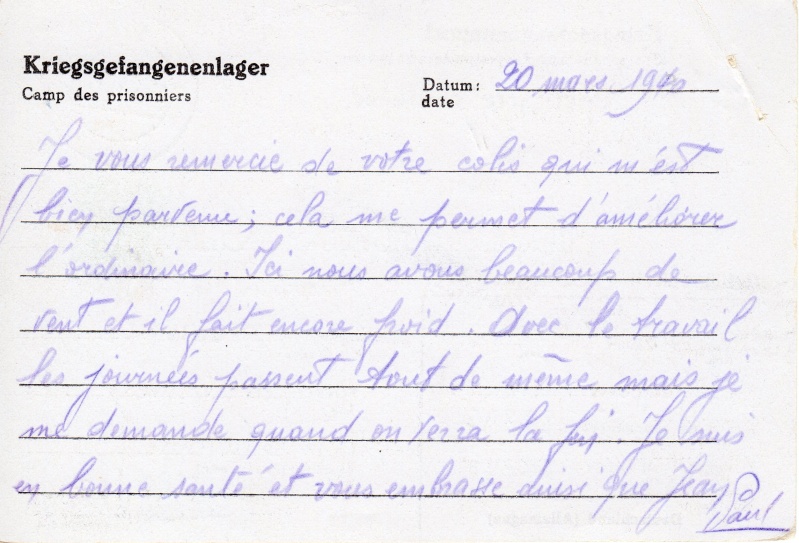 Kriegsgefangenenlager
Camp des prisonniers
Datum: 20 mars 1940
date
Je vous remercie de votre colis qui m'est
bien parvenu ; cela me permet d'améliorer
l'ordinaire. Ici nous avons beaucoup de
vent et il fait encore froid. Avec le travail
les journées passent tout de même mais je
me demande quand on verra la fin. Je suis
en bonne santé et vous embrasse ainsi que Jean
Paul